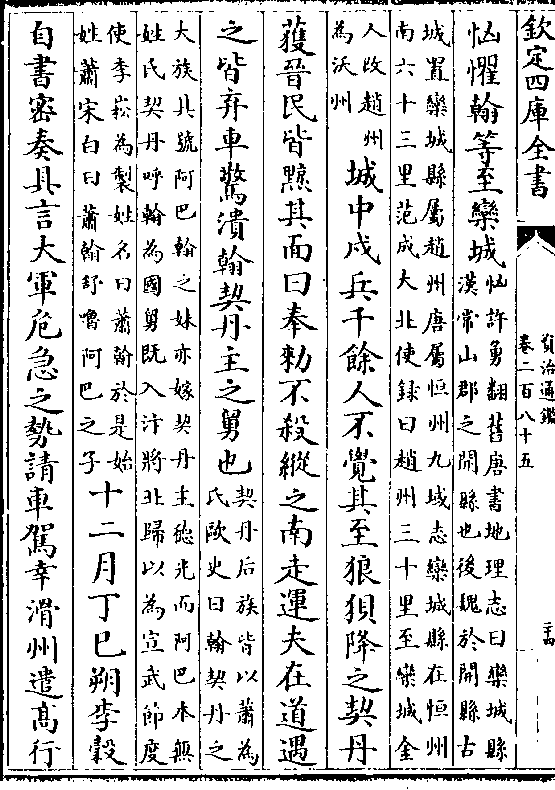 欽定四庫全書
資治通鑑
卷二百八十五
恟懼翰等至欒城恟許勇翻舊唐書地理志曰欒城縣
漢常山郡之開縣也後魏於開縣古
城置欒城縣屬趙州唐屬恒州九域志欒城縣在恒州
南六十三里范成大北使録曰趙州三十里至欒城金
人改趙州
為沃州城中戍兵千餘人不覺其至狼狽降之契丹
獲晉民皆黥其面曰奉勅不殺縱之南走運夫在道遇
之皆弃車驚潰翰契丹主之舅也契丹后族皆以蕭為
氏歐史曰翰契丹之
大族其號阿巴翰之妹亦嫁契丹主德光而阿巴本無
姓氏契丹呼翰為國舅既入汴將北歸以為宣武節度
使李崧為製姓名曰蕭翰於是始
姓蕭宋白曰蕭翰舒嚕阿巴之子十二月丁巳朔李穀
自書密奏具言大軍危急之勢請車駕幸滑州遣高行